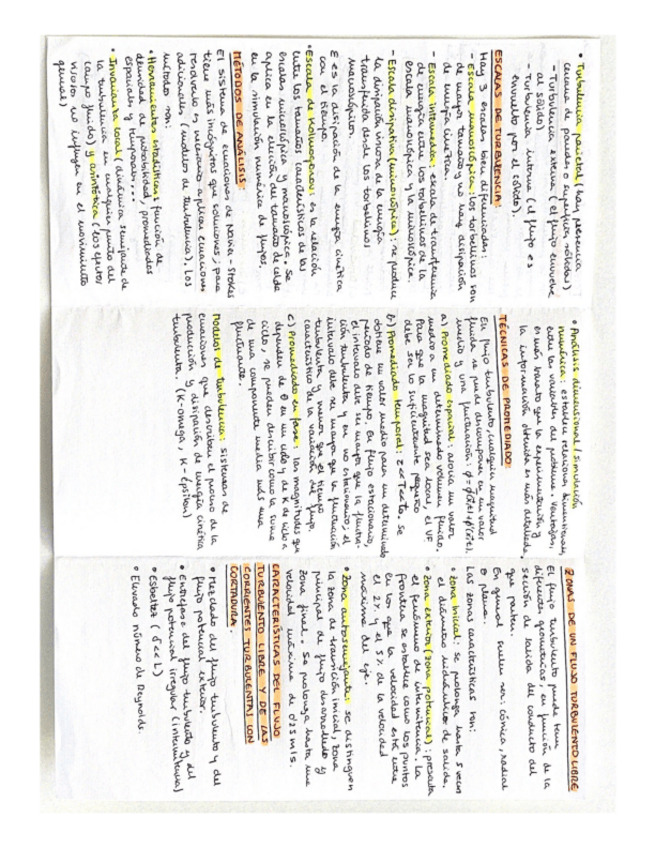 • Turbulencia parietal (hay presencia
cercana de paredes o superficies sólidas)
- Turbulencia externa (el flujo envuelve
al sólido)
- Turbulencia interna (el flujo es
envuelto por el sólido).
ESCALAS DE TURBULENCIA:
Hay 3 escalas bien diferenciadas:
- Escala macroscópica: los torbellinos son
de mayor tamaño y no hay disipación
de energía cinética.
- Escala intermedia: escala de transferencia
de energía entre los torbellinos de la
escala macroscópica y la microscópica.
- Escala disipativa (microscópica): se produce
la disipación viscosa de la energía
transferida desde los torbellinos
macroscópicos.
E es la disipación de la energía cinética
con el tiempo.
• Escala de Kolmogorov: es la relación
entre los tamaños característicos de las
escalas microscópica y macroscópica. Se
aplica en la elección del tamaño de celda
en la simulación numérica de flujos.
MÉTODOS DE ANÁLISIS:
El sistema de ecuaciones de Navier-Stokes
tiene más incógnitas que soluciones, para
resolverlo es necesario aplicar ecuaciones
adicionales (modelos de turbulencia). Los
métodos son:
• Herramientas estadísticas: función de
densidad de probabilidad, promediados
espaciales y temporales...
• Invarianza local (dinámica semejante de
la turbulencia en cualquier punto del
campo fluido) y asintótica (los efectos
viscosos no influyen en el movimiento
general)
• Análisis dimensional / simulación
numérica: establece relaciones dimensionales
entre las variables del problema. Ventajas,
es más barato que la experimentación y
la información obtenida es más detallada.
TÉCNICAS DE PROMEDIADO:
En flujo turbulento, cualquier magnitud
fluida se puede descomponer en un valor
medio y una fluctuación:
a) Promediado espacial: asocia un valor
medio a un determinado volumen fluido.
Para que la magnitud sea local, el VF
debe ser lo suficientemente pequeño
b) Promediado temporal: Se
obtiene un valor medio para un determinado
periodo de tiempo. En flujo estacionario,
el intervalo debe ser mayor que la fluctua-
ción turbulenta y en no estacionario, el
intervalo debe ser mayor que la fluctuación
turbulenta y menor que el tiempo
característico de la variación del flujo.
c) Promediado en fase: las magnitudes que
dependen de θ en un ciclo y de K de ciclo a
ciclo, se pueden describir como la suma
de una componente media más una
fluctuante.
Modelos de turbulencia: sistemas de
ecuaciones que describen el proceso de la
producción y disipación de energía cinética
turbulenta. (K-omega, K-épsilon)
ZONAS DE UN FLUJO TURBULENTO LIBRE
El flujo turbulento puede tener
diferentes geometrías, en función de la
sección de salida del conducto del
que parten.
En general suelen ser: cónica, radial
o plana.
Las zonas características son:
• Zona inicial: se prolonga hasta 5 veces
el diámetro hidráulico de salida.
• Zona exterior (zona potencial): presenta
el fenómeno de intermitencia. La
frontera se establece como los puntos
en los que la velocidad está entre
el 2% y el 5% de la velocidad
máxima del eje.
• Zona autosemejante: se distinguen
la zona de transición inicial, zona
principal de flujo desarrollado y
zona final. Se prolonga hasta una
velocidad máxima de 0'25 m/s.
CARACTERÍSTICAS DEL FLUJO
TURBULENTO LIBRE Y DE LAS
CORRIENTES TURBULENTAS CON
CORTADURA.
• Mezclado del flujo turbulento y del
flujo potencial exterior.
• Interfase del flujo turbulento y del
flujo potencial irregular (intermitencia)
• Esbeltez (δ << L)
• Elevado número de Reynolds.